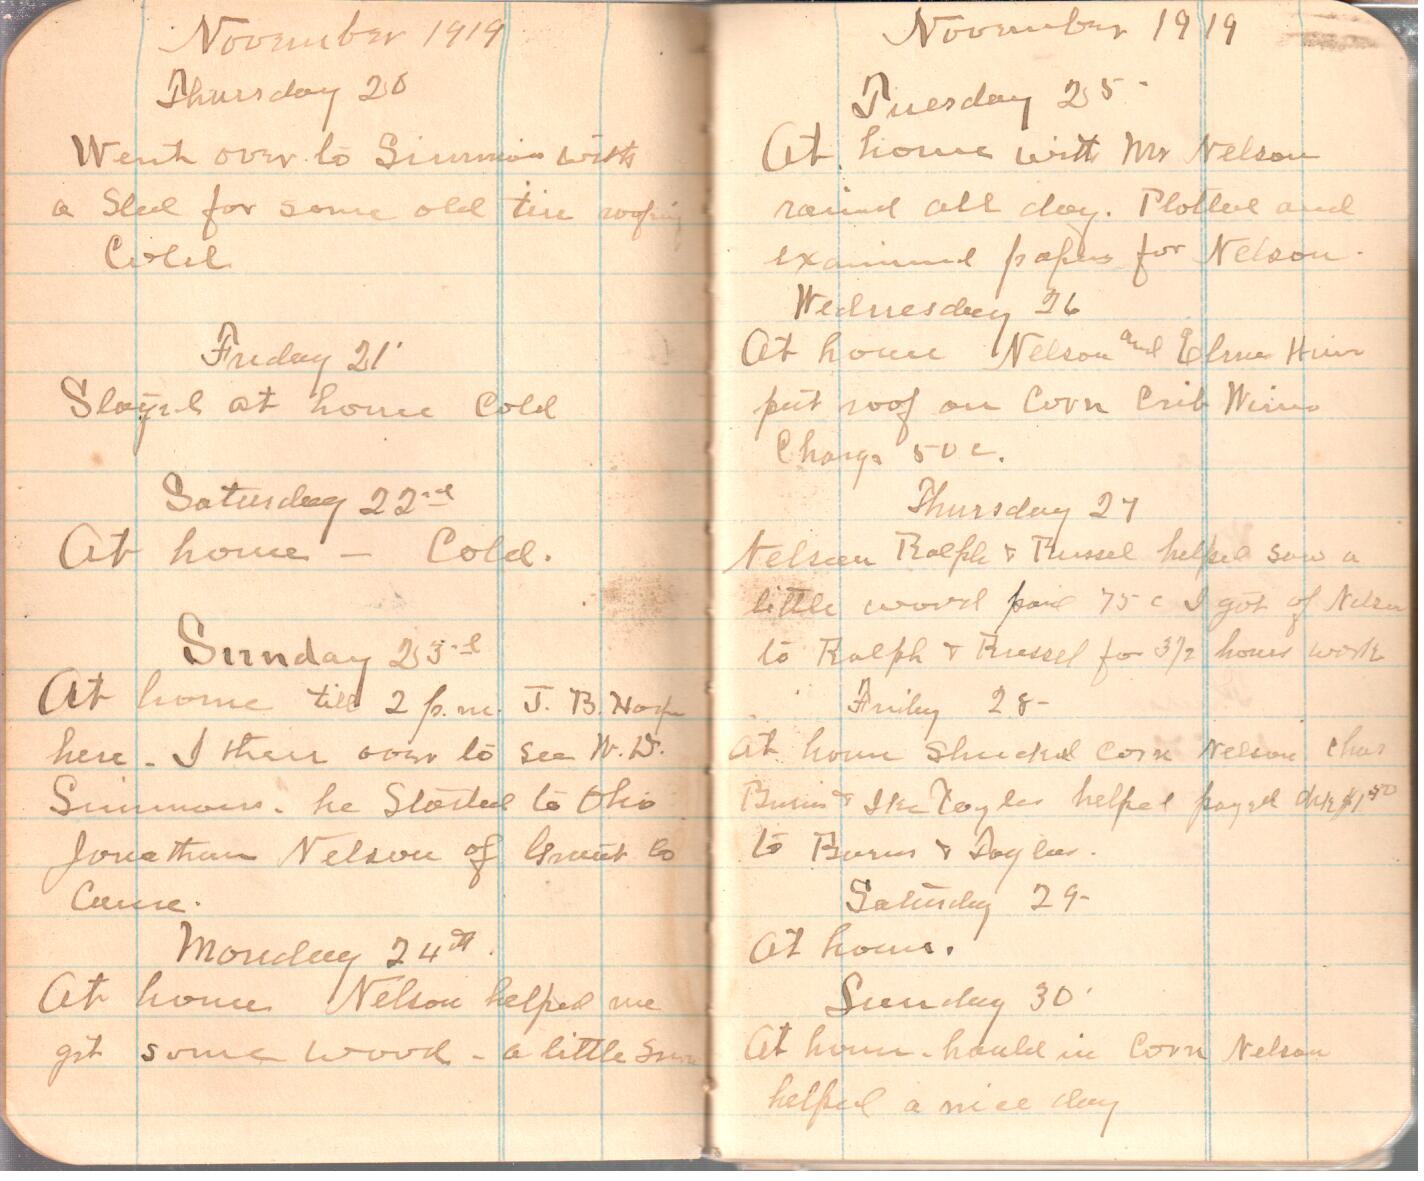 November 1919
Thursday 20
Went over to Simmons with
a Sled for some old tin roofing
Cold
Friday 21
Stayed at home Cold
Saturday 22nd
At home — Cold.
Sunday 23rd
At home till 2 p.m. J. B.
here. I then over to see W. D.
Simmons. he Started to Ohio
Jonathan Nelson of Grant Co
Came.
Monday 24th.
At home Nelson helped me
get some wood - a little Snow
November 1919
Tuesday 25-
At home with Mr Nelson
rained all day. Plotted and
examined papers for Nelson.
Wednesday 26
At home Nelson and
put roof on Corn Crib
Charge 50c.
Thursday 27
Nelson Ralph & Russel helped saw a
little wood paid 75c I got of Nelson
to Ralph & Russel for 3½ hours work
Friday 28-
At home Shucked Corn Nelson Chas
Burns & Ike Taylor helped payed $1.50
to Burns & Taylor.
Saturday 29-
At home.
Sunday 30
At home - hauled in Corn Nelson
helped a nice day